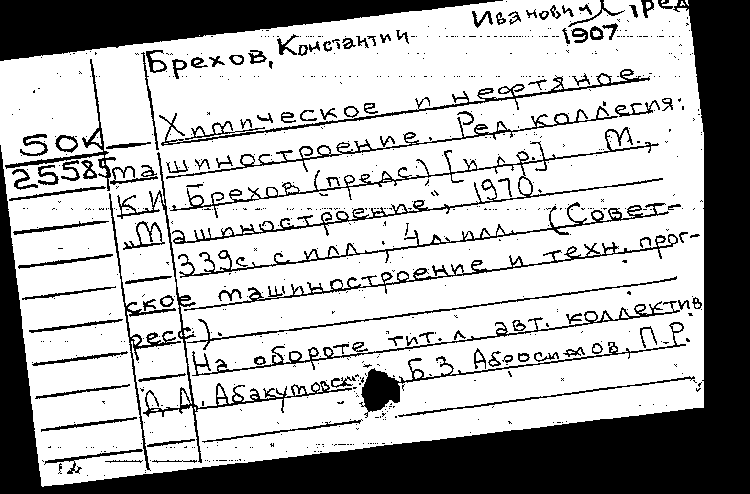 Брехов, Константин Иванович
1907
Химическое и нефтяное
50к
25585
машиностроение. Ред. коллегия:
К.И. Брехов (предс.) [и др.]. М.,
„Машиностроение", 1970.
339с. с илл.; 4 л. илл. (Совет-
ское машиностроение и техн. прог-
ресс).
На обороте тит. л. авт. коллектив
Д.Д. Абакумовск , Б.З. Абросимов, П.Р.